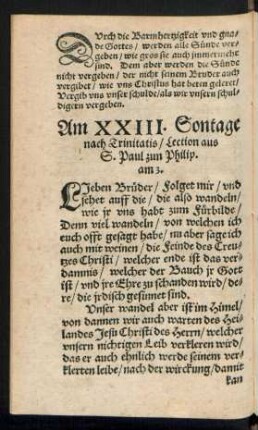 DVrch die Barmhertzigkeit vnd gna-
de Gottes / werden alle Sünde ver-
geben / wie gros sie auch jmmermehr
sind. Dem aber werden die Sünde
nicht vergeben / der nicht seinem Bruder auch
vergibet / wie vns Christus hat beten geleret /
Vergib vns vnser schulde / als wir vnsern schul-
digern vergeben.
Am XXIII. Sontage
nach Trinitatis / Lection aus
S. Paul zun Philip.
am 3.
LIeben Brüder / Folget mir / vnd
sehet auff die / die also wandeln /
wie jr vns habt zum Fürbilde /
Denn viel wandeln / von welchen ich
euch offt gesagt habe / nu aber sage ich
auch mit weinen / die Feinde des Creu-
tzes Christi / welcher ende ist das ver-
damnis / welcher der Bauch jr Gott
ist / vnd jre Ehre zu schanden wird / de-
re / die jrdisch gesinnet sind.
Vnser wandel aber ist im Himel /
von dannen wir auch warten des Hei-
landes Jesu Christi des Herrn / welcher
vnsern nichtigen Leib verkleren wird /
das er auch ehnlich werde seinem ver-
klerten leibe / nach der wirckung / damit
kan